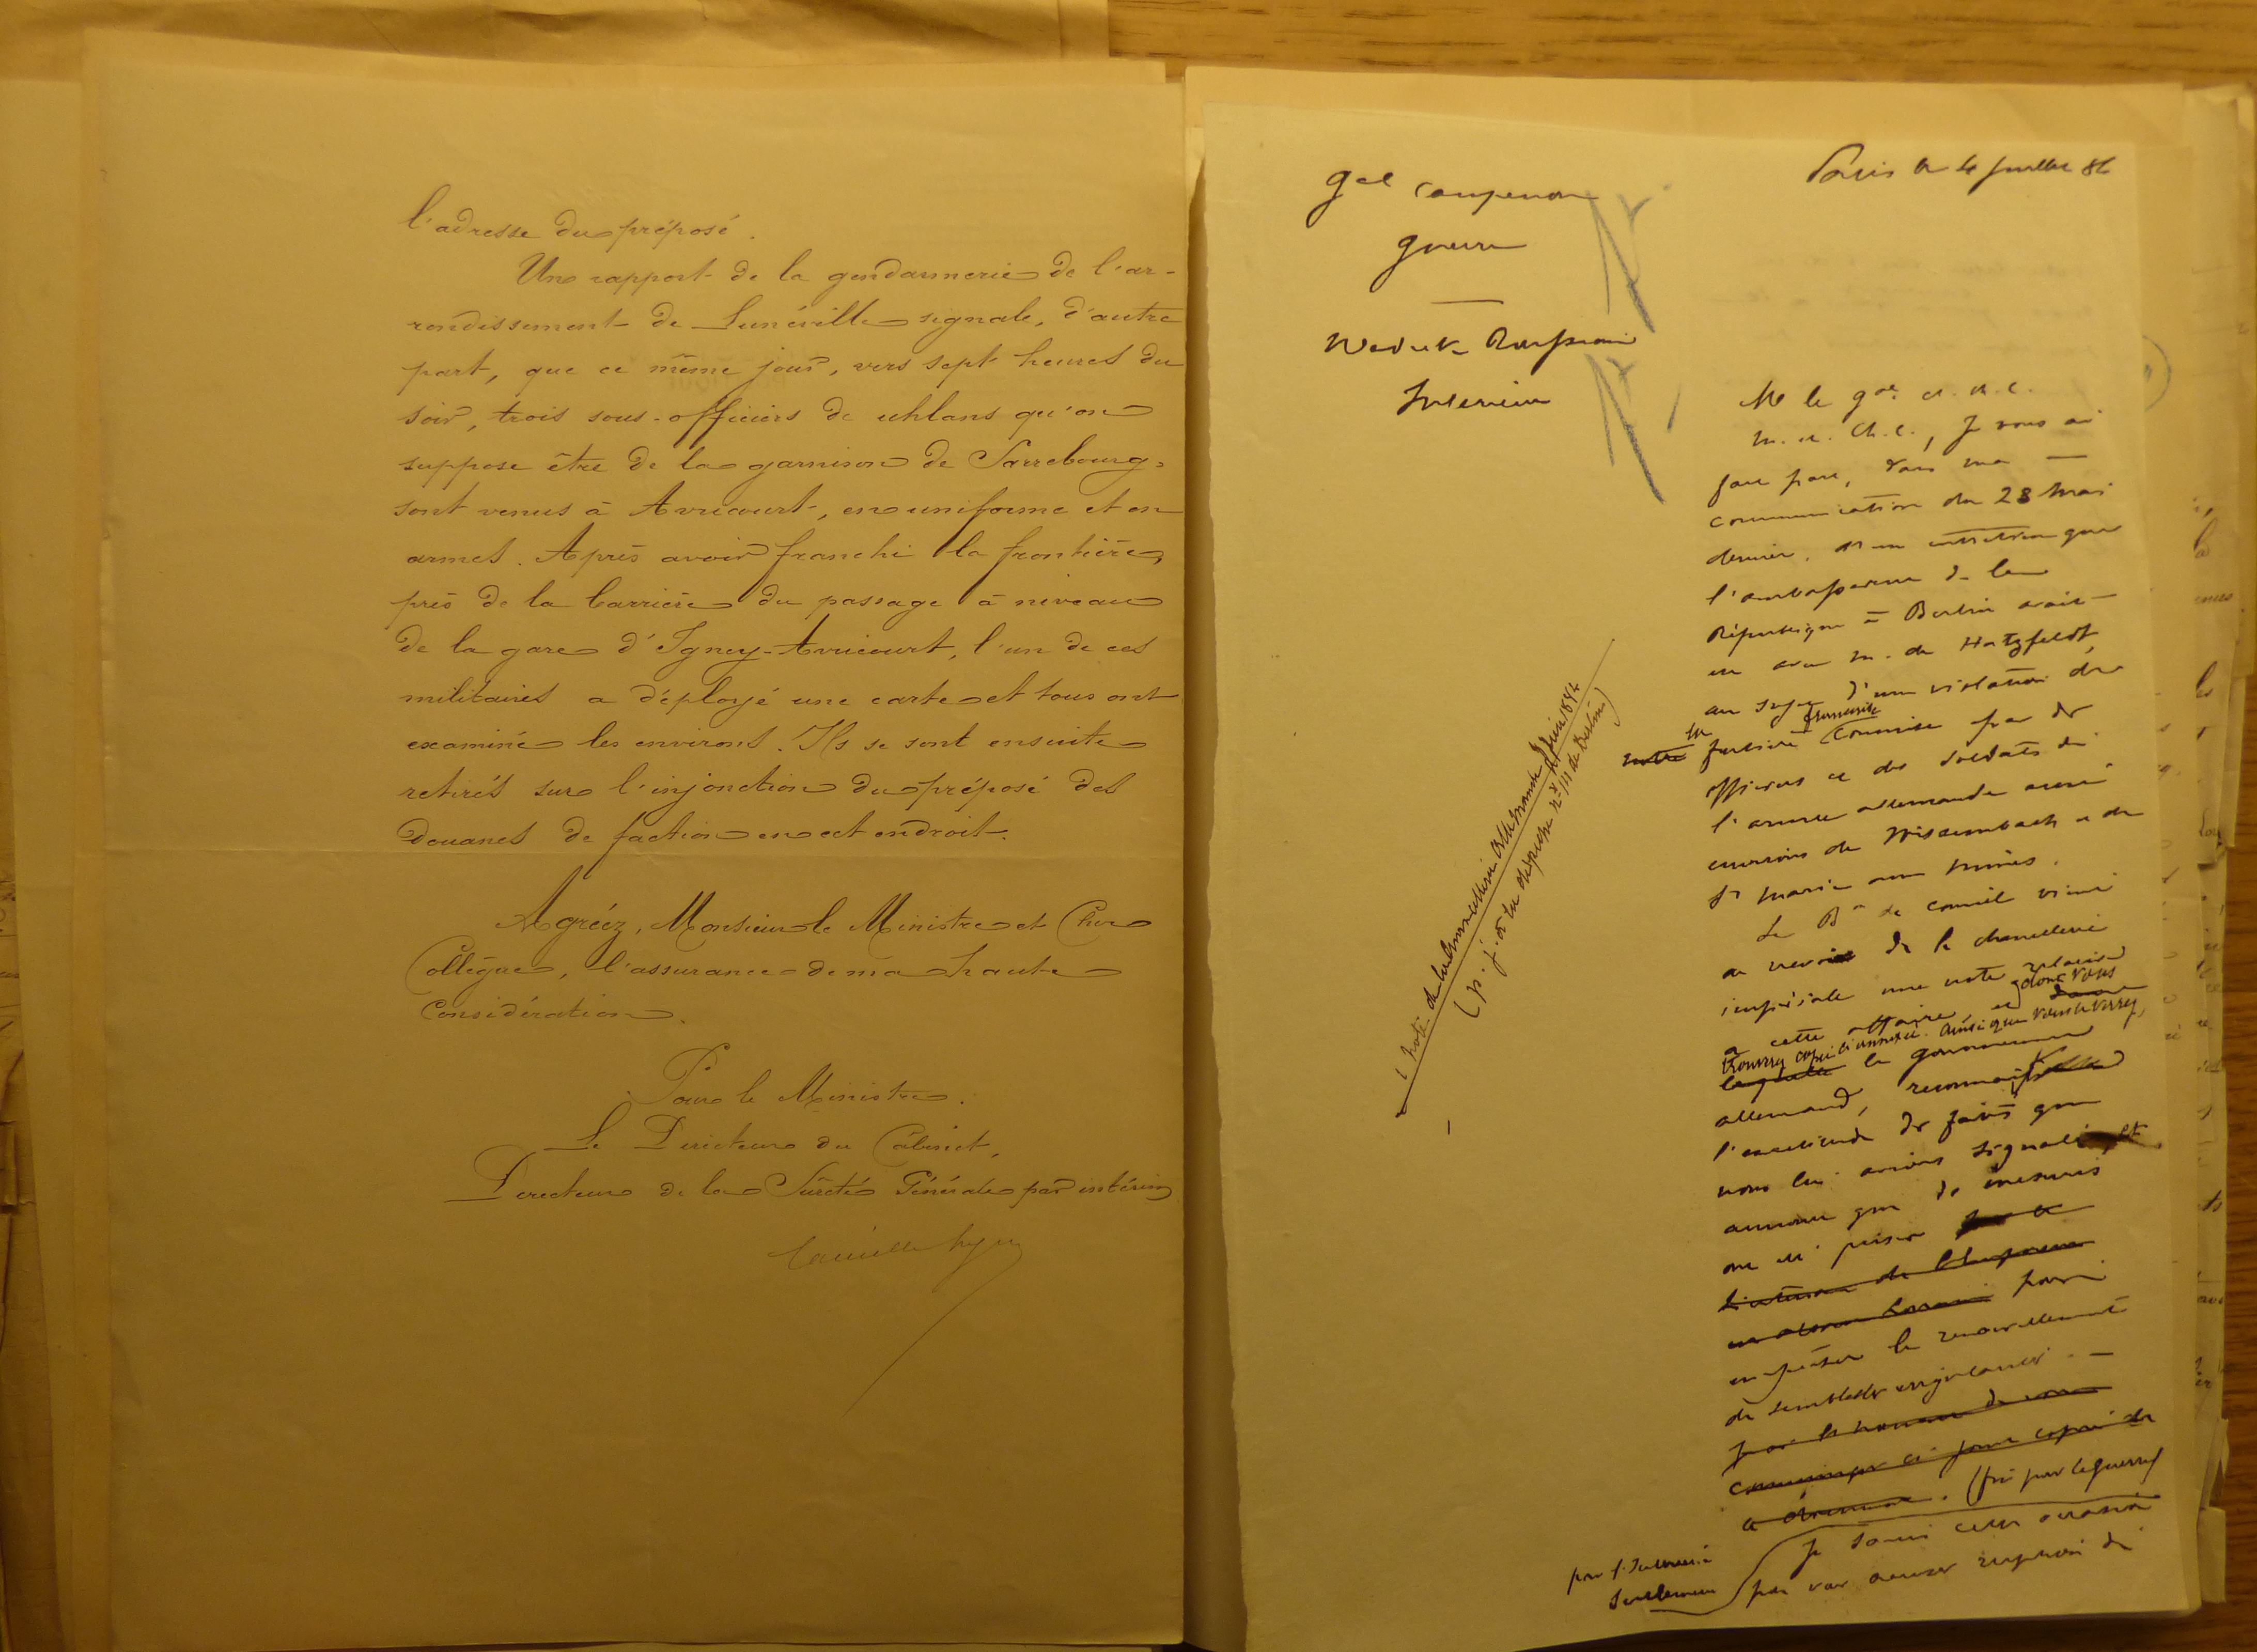 l'adresse du préposé.
Un rapport de la gendarmerie de l'ar-
rondissement de Lunéville signale, d'autre
part, que ce même jour, vers sept heures du
soir, trois sous-officiers de uhlans qu'on
suppose être de la garnison de Sarrebourg,
sont venus à Avricourt, en uniforme et en
armes. Après avoir franchi la frontière,
près de la barrière du passage à niveau
de la gare d'Igney-Avricourt, l'un de ces
militaires a déployé une carte et tous ont
examiné les environs. Ils se sont ensuite
retirés sur l'injonction du préposé des
Douanes de faction en cet endroit.
Agréez, Monsieur le Ministre et Cher
Collègue, l'assurance de ma haute
Considération.
Pour le Ministre.
Le Directeur du Cabinet,
Directeur de la Sûreté Générale par intérim
Gal Campenon
Guerre
Waldeck Rousseau
Intérieur
Paris le 4 Juillet 84
M le gal et ch. c.
M. et Ch. c., Je vous ai
fait part, dans ma
communication du 28 Mai
dernier, d'un entretien que
l'ambassadeur de la
République à Berlin avait
eu avec M. de Hatzfeldt,
au sujet d'une violation de
notre la frontière française commise par des
officiers et des soldats de
l'armée allemande aux
environs de Wissembach et de
Ste Marie aux Mines.
Le Bon de Courcel vient
de recevoir de la chancellerie
impériale une note relative
à cette affaire et dont vous
trouverez copie ci annexée. Ainsi que vous le verrez,
laquelle le gouvernement
allemand, reconnaît
l'exactitude des faits que
nous lui avions signalés et
annonce que des mesures
ont été prises
pour
empêcher le renouvellement
de semblables
J'ai l'honneur de vous
communiquer ci joint copie de
ce document. (fin pour la guerre)
pour l'Intérieur
seulement
Je saisis cette occasion
pour vous accuser réception de
(note de la chancellerie allemande Juin 1884
(p. j. à la dépêche no 111 de Berlin)